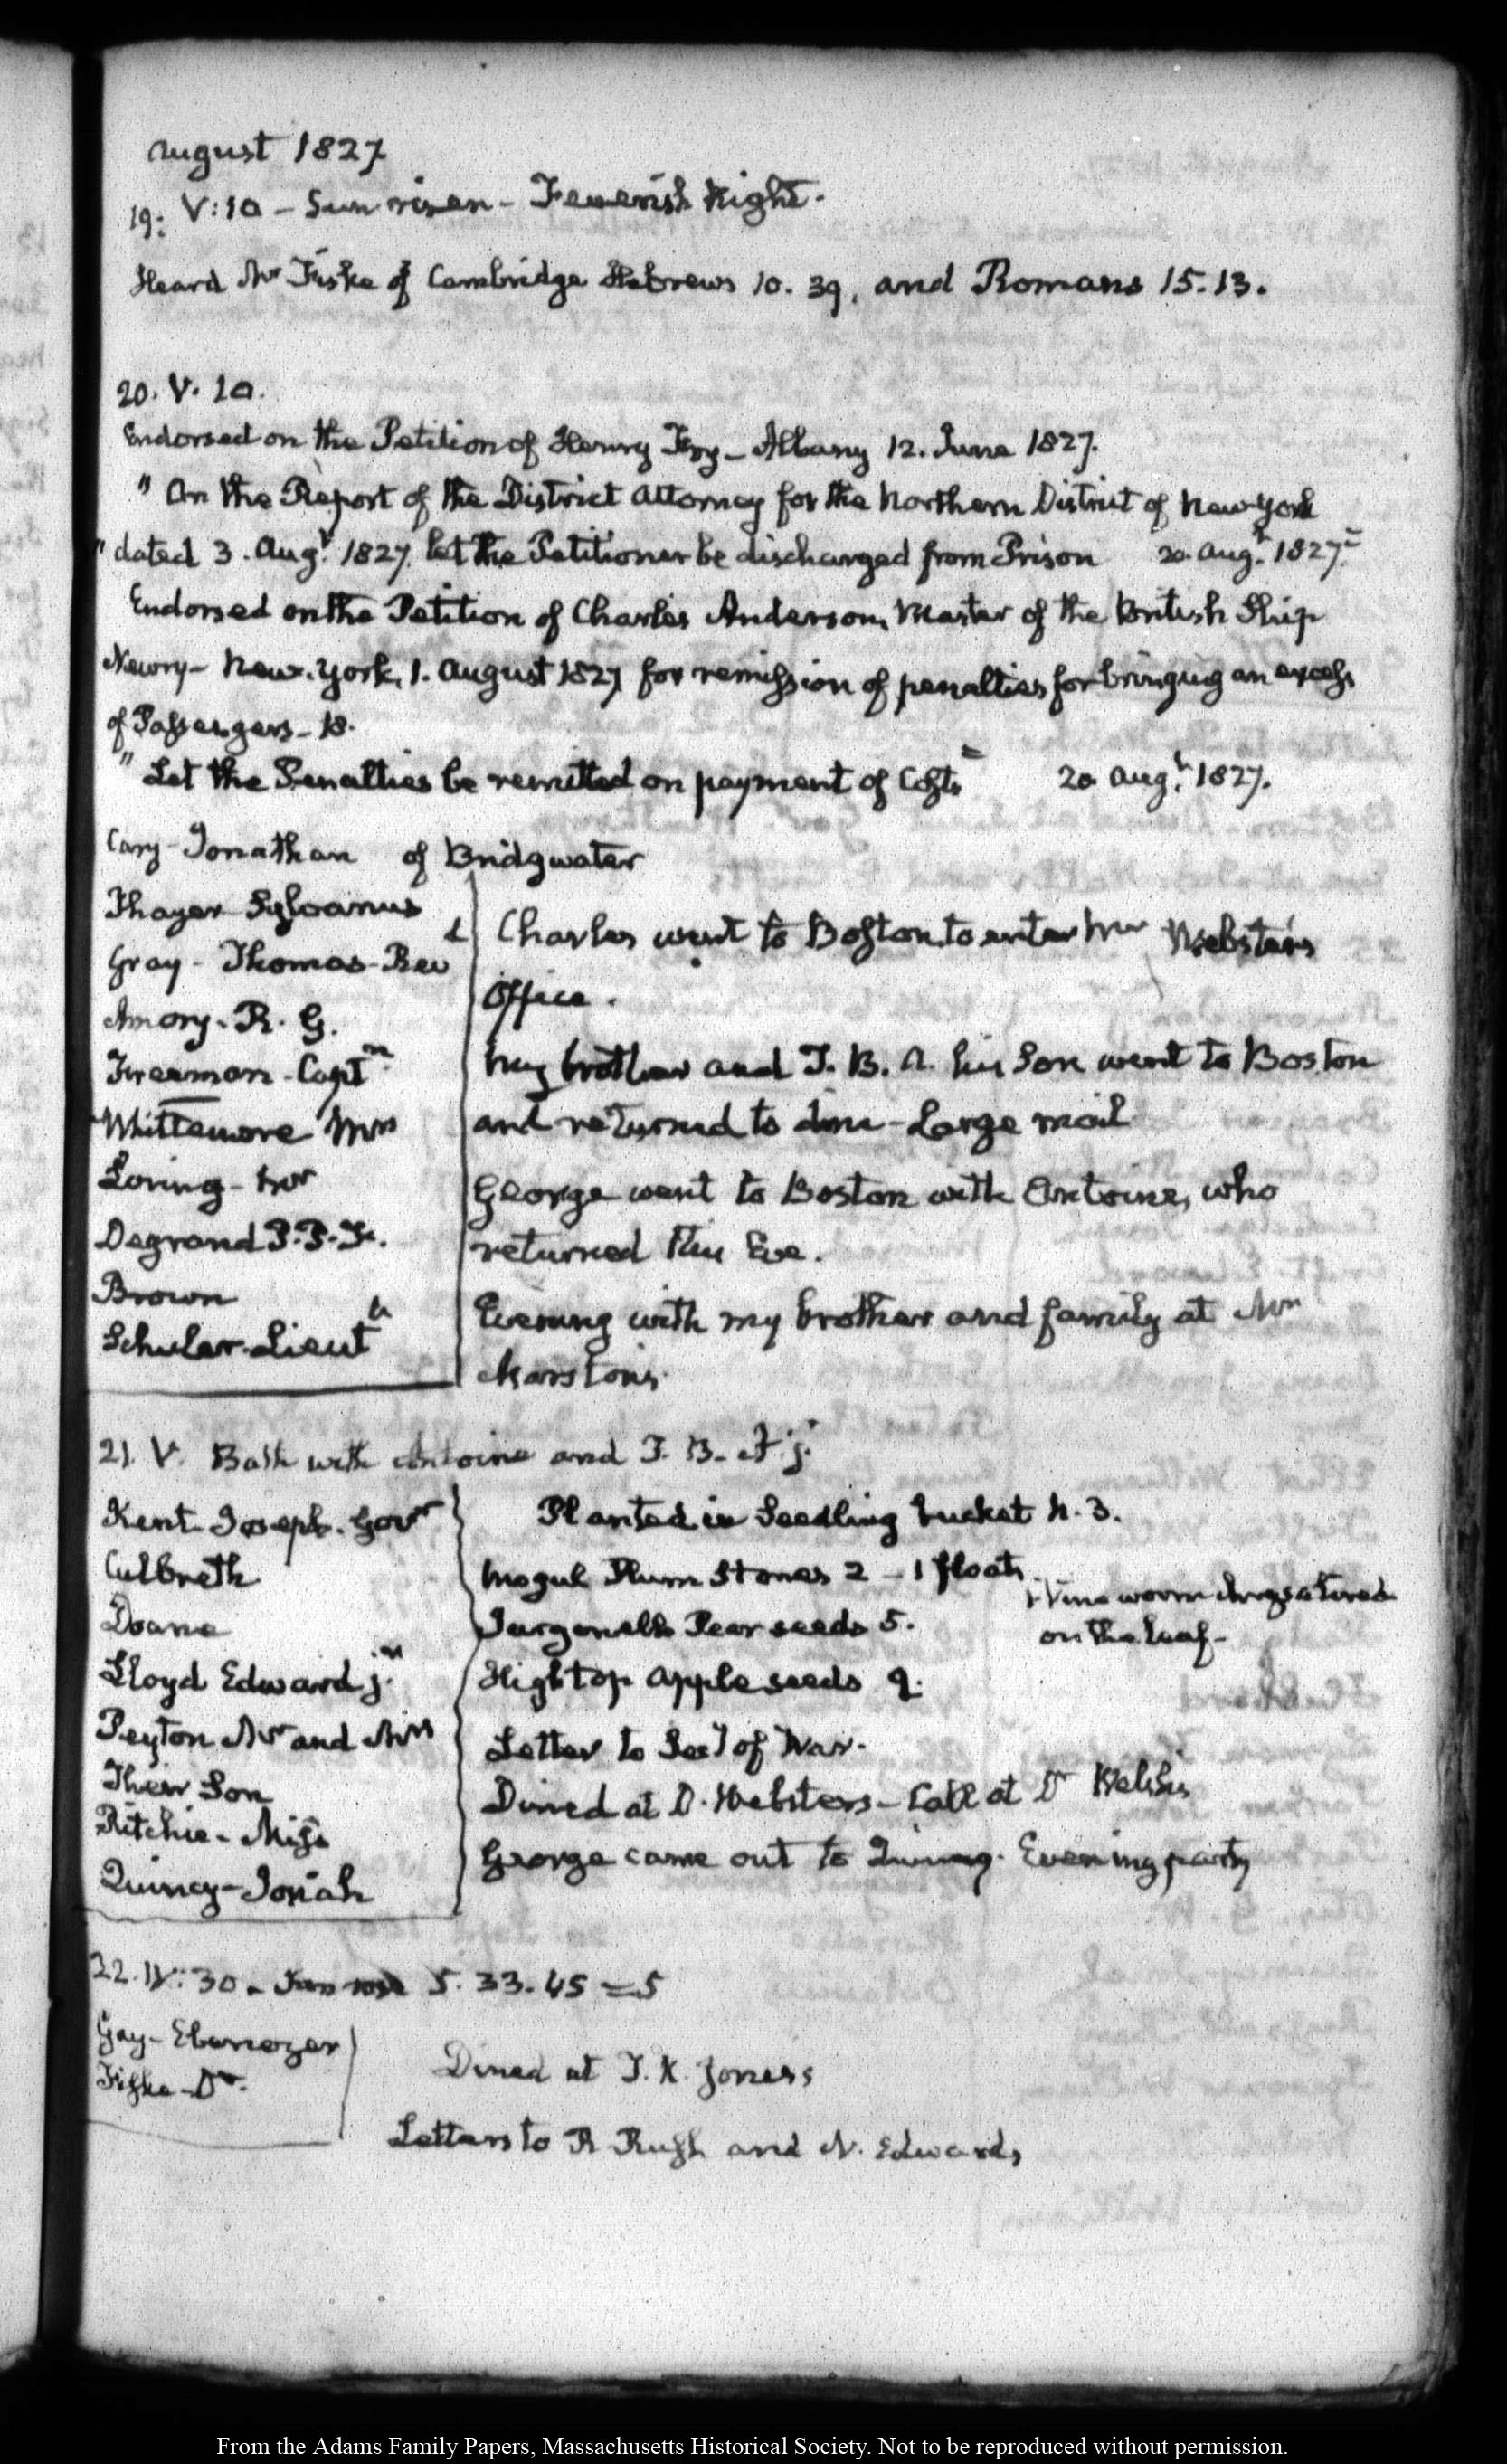 August 1827
19: V:10 - Sun risen - Feverish Night.
Heard Mr Fiske of Cambridge Hebrews 10. 39, and Romans 15. 13.
20. V. 10.
Endorsed on the Petition of Henry Fry - Albany 12. June 1827.
" On the Report of the District Attorney for the Northern District of New York
" dated 3. Augt. 1827. let the Petitioner be discharged from Prison 20 Augt. 1827."
Endorsed on the Petition of Charles Anderson, Master of the British Ship
Newry - New-York, 1. August 1827 for remission of penalties for bringing an excess
of Passengers - 18.
" Let the Penalties be remitted on payment of Costs" 20 Augt. 1827.
Cary - Jonathan of Bridgwater
Thayer Sylvanus
Gray - Thomas - Rev
Amory - R. G.
Freeman - Captn
Whittemore Mrs
Loring - Mr
Degrand P. P. F.
Brown
Schuler - Lieutt
Charles went to Boston to enter Mr Webster's
Office.
My brother and T. B. A. his Son went to Boston
and returned to dine - Large mail
George went to Boston with Antoine, who
returned this Eve.
Evening with my brother and family at Mrs
Marston's.
21. V. Bath with Antoine and T. B. A. j.
Kent Joseph. Govr
Culbreth
Doane
Lloyd Edward jr.
Peyton Mr and Mrs
Their Son
Ritchie - Miss
Quincy - Josiah
Planted in Seedling bucket N. 3.
Mogul Plum Stones 2 - 1 floats.
Jargonelle Pear seeds 5.
on the Leaf -
High top apple seeds 9.
Letter to Secy of War.
Dined at D. Webster's - Call at Dr Welsh's
George came out to Quincy. Evening party
22. IV: 30 - Sun rose 5. 33. 45 = 5
Gay - Ebenezer
Fiske - Dr.
Dined at T. K. Jones's
Letters to R Rush and N. Edwards
From the Adams Family Papers, Massachusetts Historical Society. Not to be reproduced without permission.